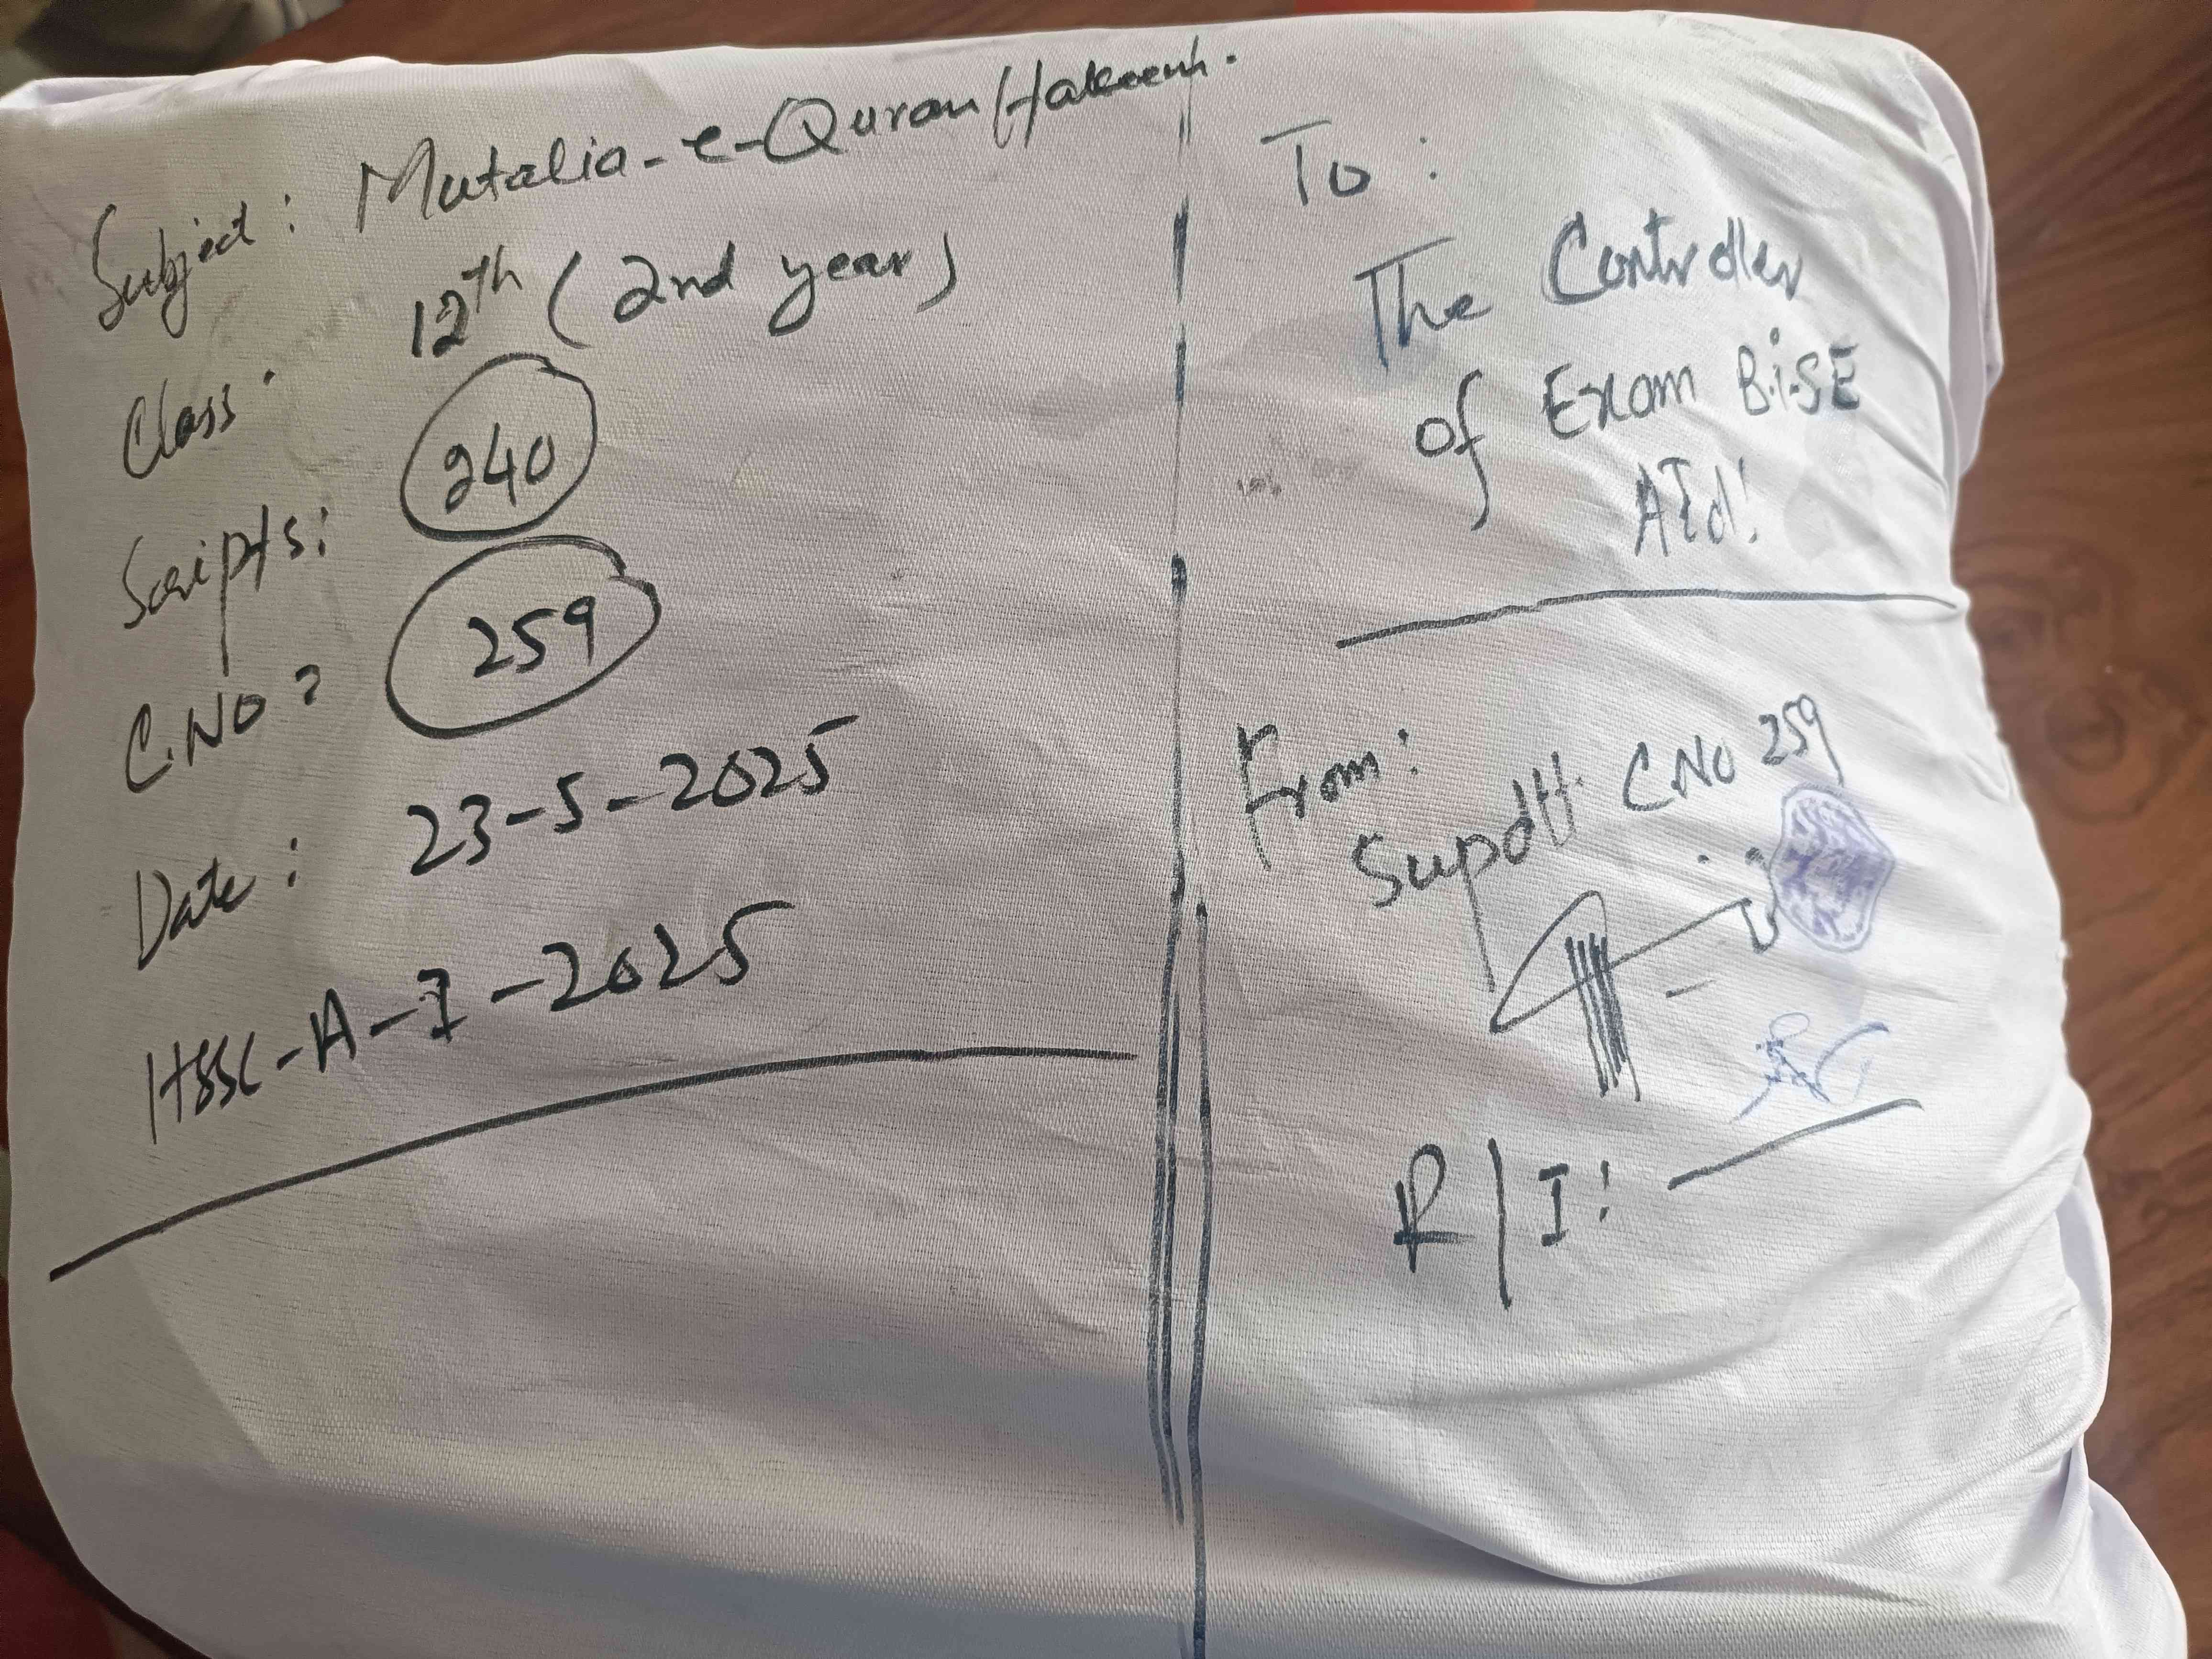 Subject: Mutalia-e-Quran Hakeem.
Class: 12th (2nd year)
Scripts: 240
C.NO: 259
Date: 23-5-2025
HSSC-A-I-2025
To:
The Controller
of Exam B.I.SE
ATd!
From:
Supdtt. C.NO 259
R/I: